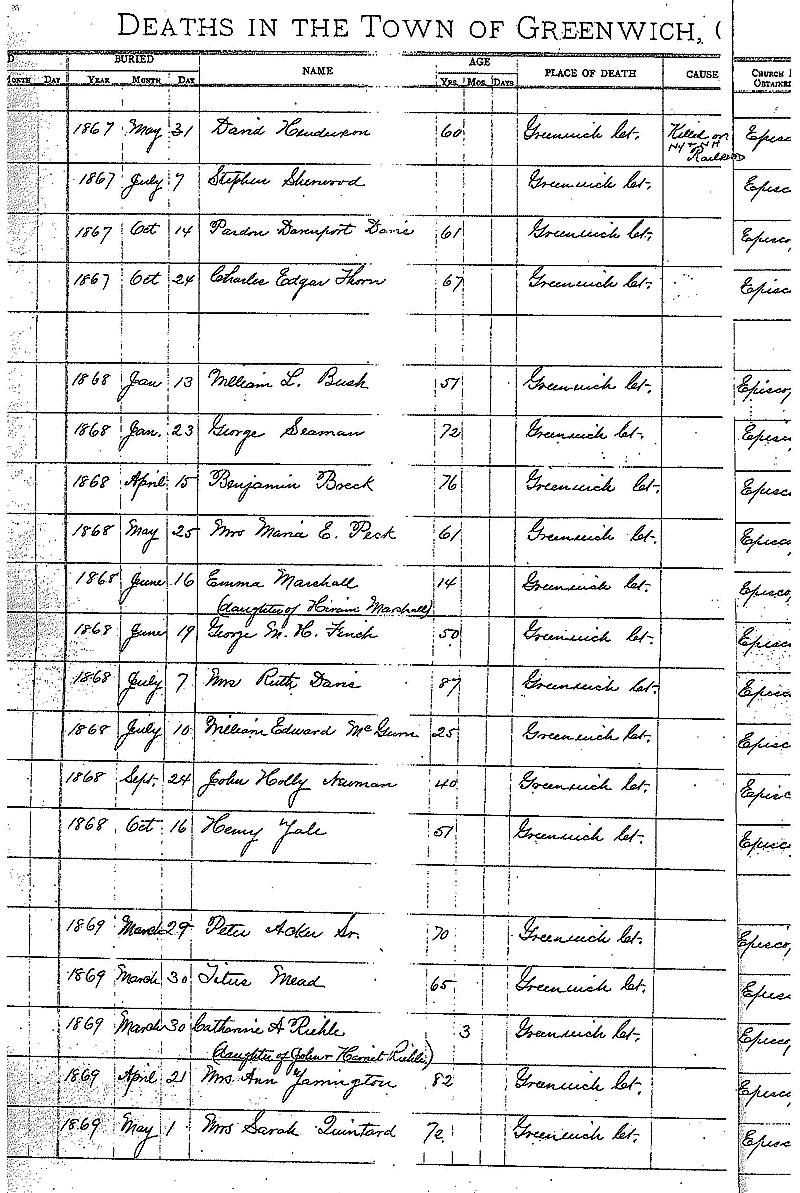 DEATHS IN THE TOWN OF GREENWICH, (
BURIED AGE
MONTH DAY YEAR MONTH DAY NAME YRS. MOS. DAYS PLACE OF DEATH CAUSE CHURCH
OBTAINED
1867 May 31 David Henderson 60 Greenwich Ct. Killed on Episc
NY & NH
Railroad
1867 July 7 Stephen Sherwood Greenwich Ct. Episc
1867 Oct 14 Pardon Davenport Davis 61 Greenwich Ct. Episco
1867 Oct 24 Charles Edgar Thorn 67 Greenwich Ct. Episc
1868 Jan 13 William L. Bush 51 Greenwich Ct. Episco
1868 Jan. 23 George Seaman 72 Greenwich Ct. Episc
1868 April 15 Benjamin Breck 76 Greenwich Ct. Episc
1868 May 25 Mrs Maria E. Peck 61 Greenwich Ct. Episco
1868 June 16 Emma Marshall 14 Greenwich Ct. Episco
(daughter of Hiram Marshall)
1868 June 19 George M. H. Finch 50 Greenwich Ct. Episc
1868 July 7 Mrs Ruth Davis 87 Greenwich Ct. Episc
1868 July 10 William Edward 25 Greenwich Ct. Episc
1868 Sept. 24 John Holly Newman 40 Greenwich Ct. Episc
1868 Oct 16 Henry Yale 51 Greenwich Ct. Episc
1869 March 29 Peter Acker Sr. 70 Greenwich Ct. Episco
1869 March 30 Titus Mead 65 Greenwich Ct. Episc
1869 March 30 Catharine A Riehle 3 Greenwich Ct. Episco
(daughter of John & Harriet Riehle)
1869 April 21 Mrs Ann Yarrington 82 Greenwich Ct. Episco
1869 May 1 Mrs Sarah Quintard 72 Greenwich Ct. Episc